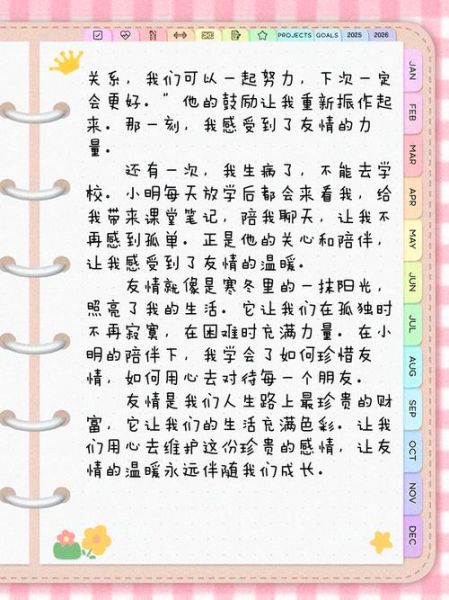 PROJECTS GOALS 2025 2026
JAN
FEB
MAR
APR
MAY
JUN
JUL
AUG
SEP
OCT
NOV
DEC
关系，我们可以一起努力，下次一定
会更好。”他的鼓励让我重新振作起
来。那一刻，我感受到了友情的力
量。
还有一次，我生病了，不能去学
校。小明每天放学后都会来看我，给
我带来课堂笔记，陪我聊天，让我不
再感到孤单。正是他的关心和陪伴，
让我感受到了友情的温暖。
友情就像是寒冬里的一抹阳光，
照亮了我的生活。它让我们在孤独时
不再寂寞，在困难时充满力量。在小
明的陪伴下，我学会了如何珍惜友
情，如何用心去对待每一个朋友。
友情是我们人生路上最珍贵的财
富，它让我们的生活充满色彩。让我
们用心去维护这份珍贵的感情，让友
情的温暖永远伴随我们成长。